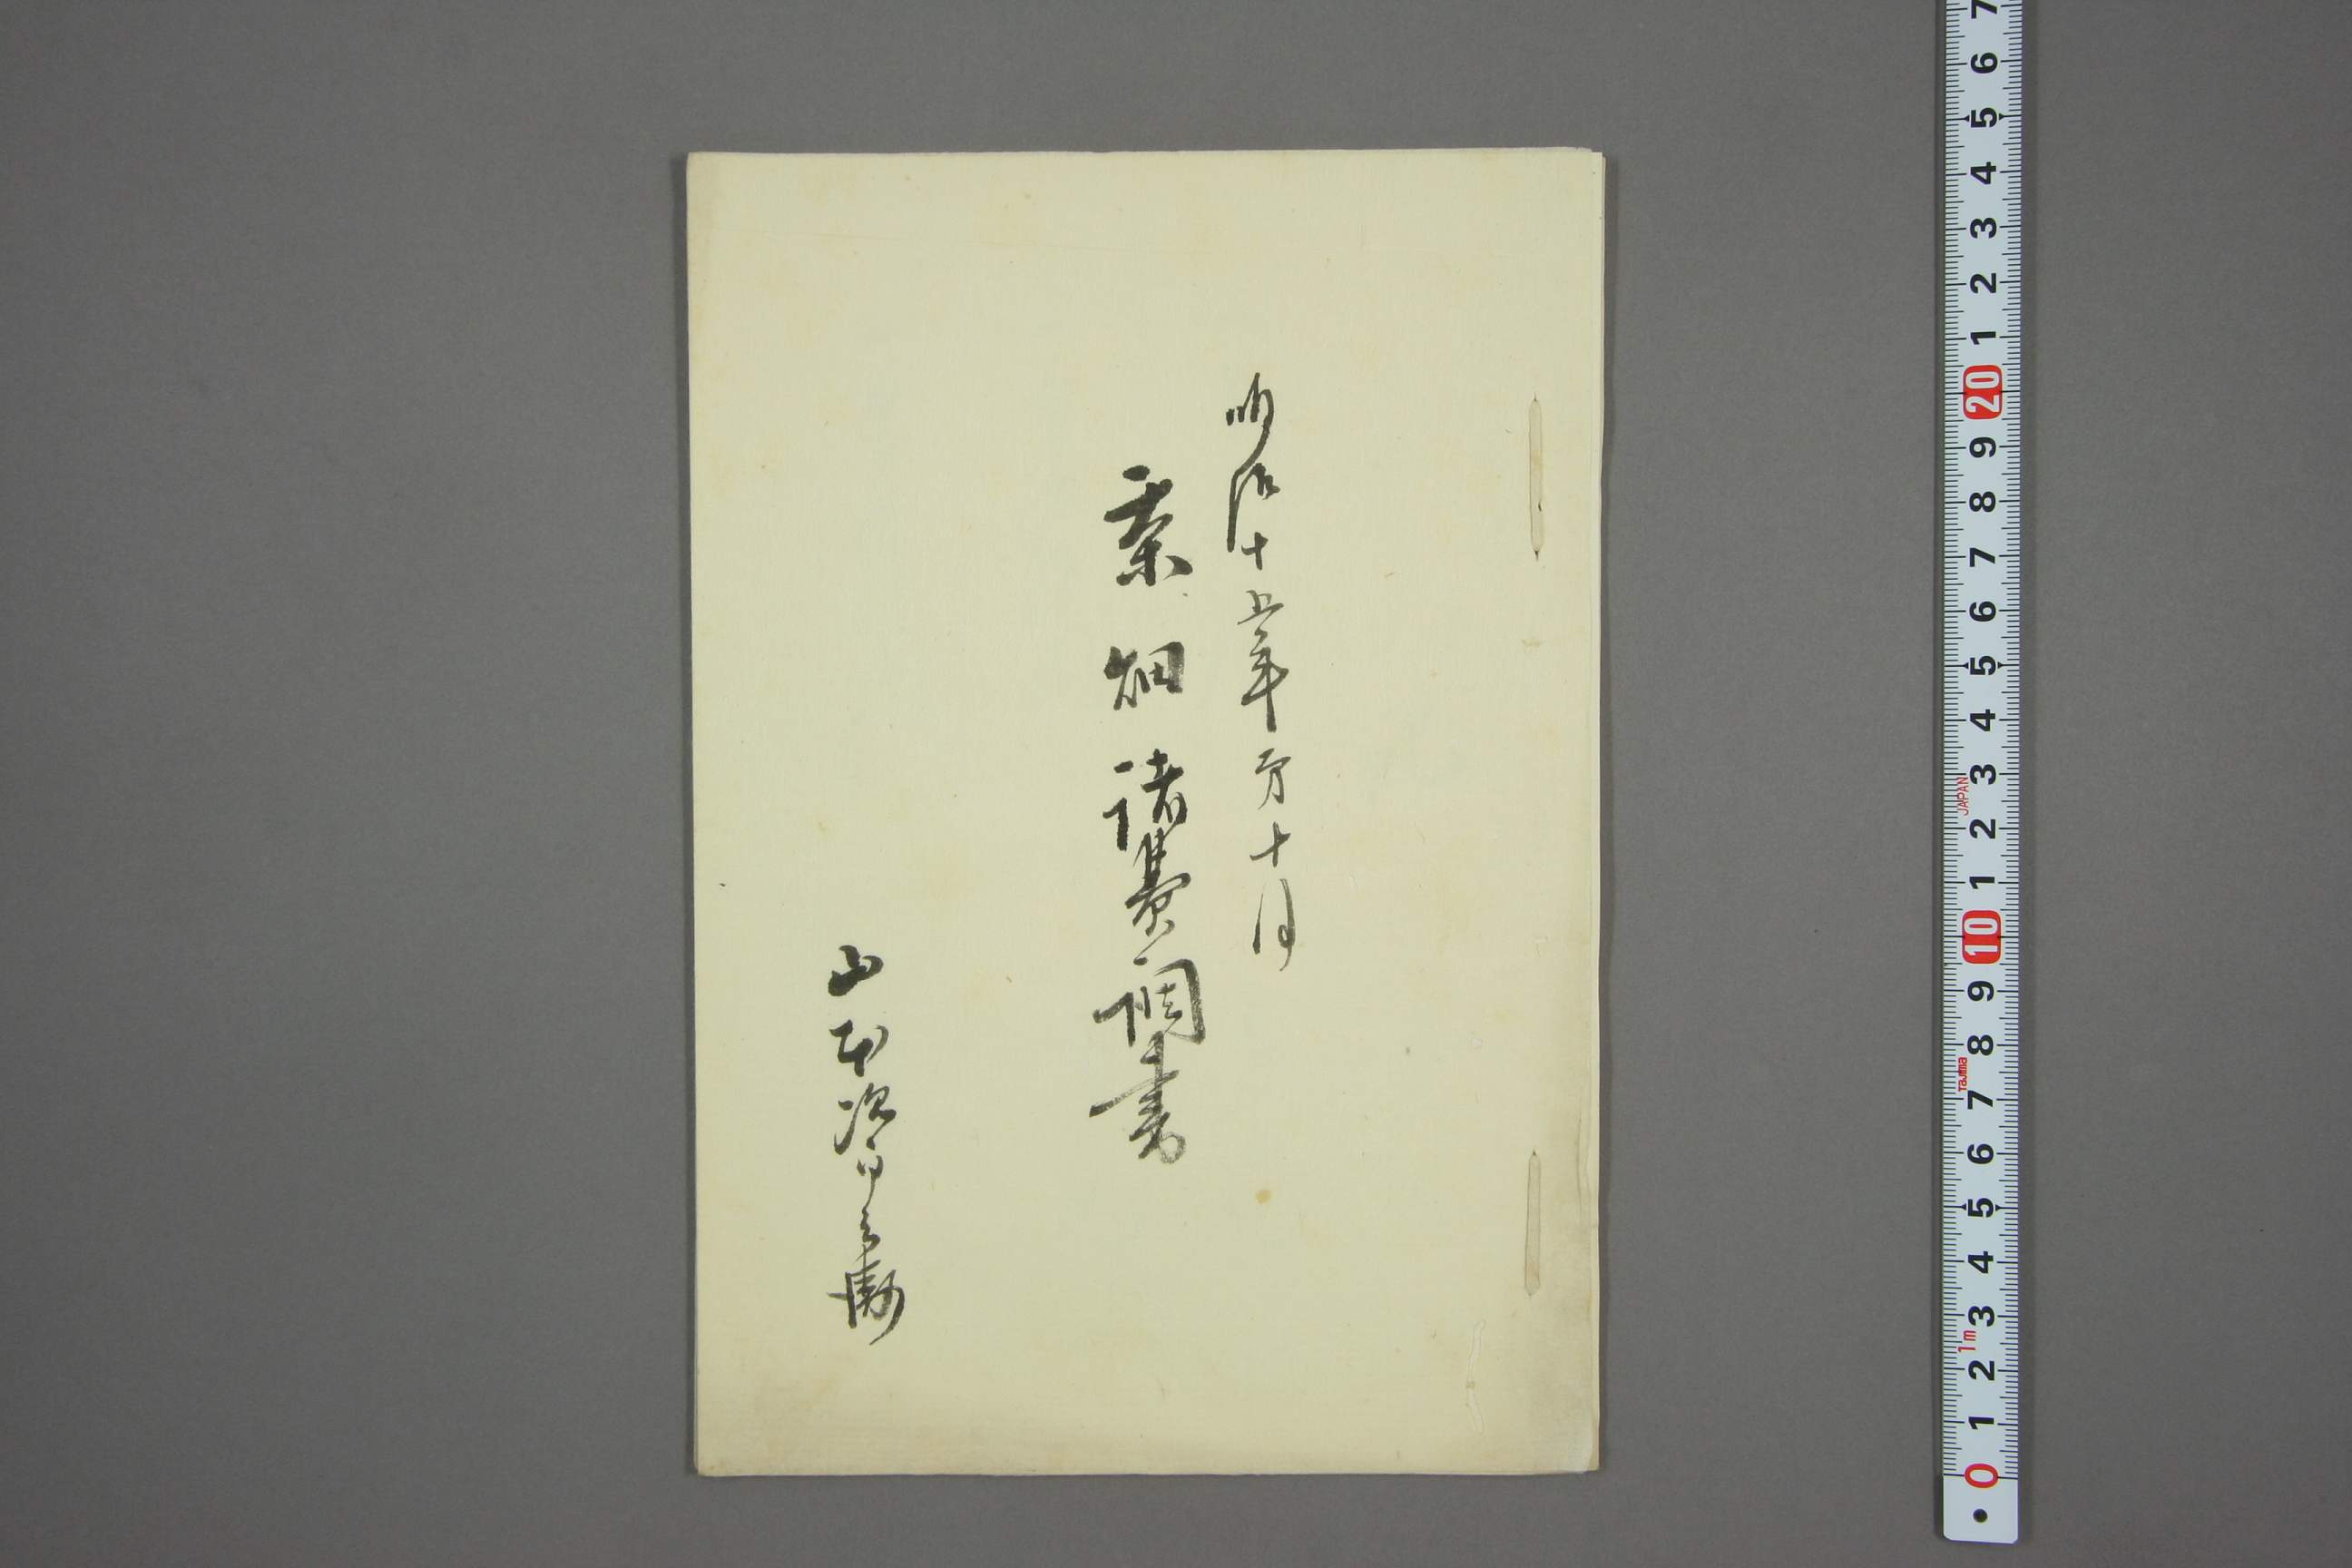 明治十五年第十月
桒畑諸費調書
山本次
7 6 5 4 3 2 1 20 9 8 7 6 5 4 3 2 1 10 9 8 7 6 5 4 3 2 1 0
JAPAN
Tajima
1m